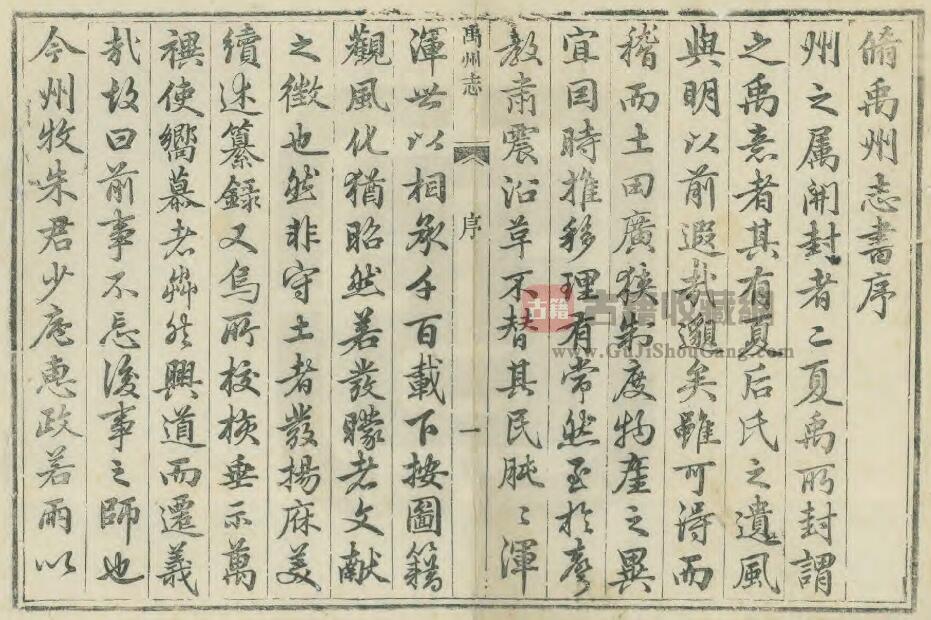 脩禹州志書序
州之属開封者二夏禹所封謂
之禹意者其有夏后氏之遺風
與明以前遐哉邈矣雖可得而
稽而土田廣狹制度物産之異
宜因時推移理有常然至於
教肅震沿草不替其民肫〻渾
禹州志
序
一
渾世以相承千百載下按圖籍
觀風化猶昭然若發矇者文献
之徵也然非守土者發揚庥美
續述纂録又烏所校垂示萬
禩使嚮慕者興道而遷義
哉故曰前事不忘後事之師也
今州牧朱君少庵惠政若雨以
古籍
古籍收藏網
www.GuJiShouCang.com